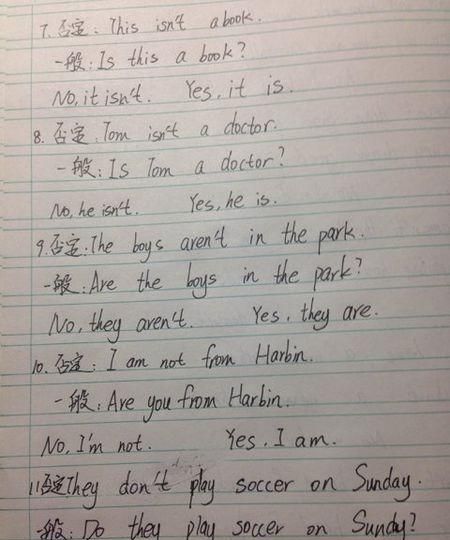 7. 否定: This isn't a book.
一般: Is this a book?
No, it isn't. Yes, it is.
8. 否定: Tom isn't a doctor.
一般: Is Tom a doctor?
No, he isn't. Yes, he is.
9. 否定: The boys aren't in the park.
一般: Are the boys in the park?
No, they aren't. Yes, they are.
10. 否定: I am not from Harbin.
一般: Are you from Harbin.
No, I'm not. Yes, I am.
11. 否定 They don't play soccer on Sunday.
一般: Do they play soccer on Sundy?